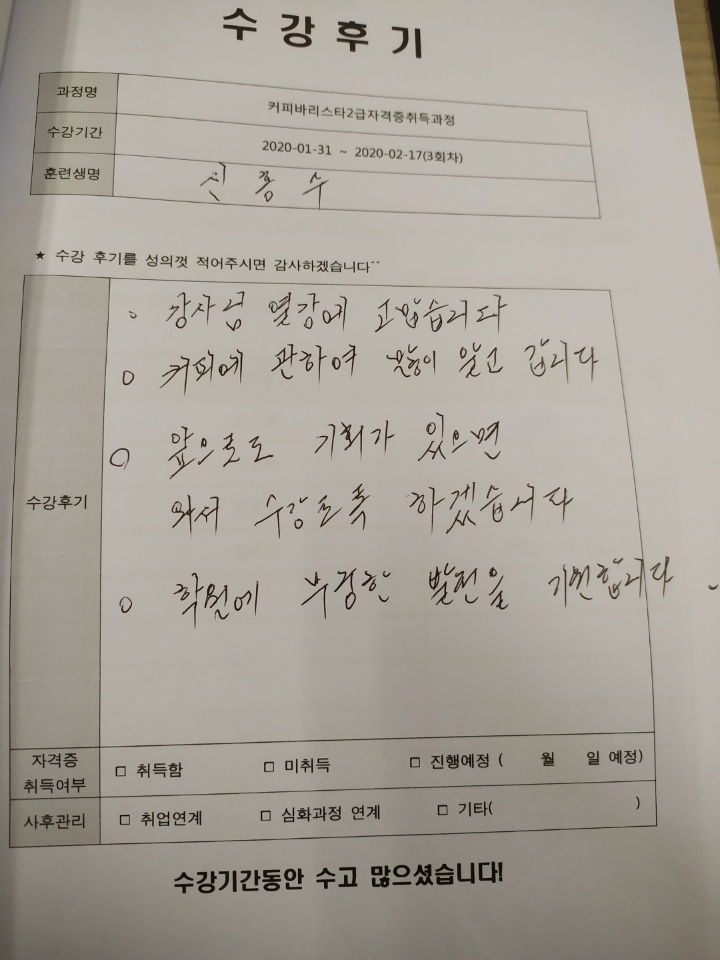 수강후기
과정명 커피바리스타2급자격증취득과정
수강기간 2020-01-31 ~ 2020-02-17(3회차)
훈련생명 신흥수
★ 수강 후기를 성의껏 적어주시면 감사하겠습니다^^
수강후기
○ 강사님 열강에 고맙습니다
○ 커피에 관하여 많이 알고 갑니다
○ 앞으로도 기회가 있으면
와서 수강토록 하겠습니다
○ 학원에 무궁한 발전을 기원합니다.
자격증 취득여부 □ 취득함 □ 미취득 □ 진행예정 ( 월 일 예정)
사후관리 □ 취업연계 □ 심화과정 연계 □ 기타( )
수강기간동안 수고 많으셨습니다!